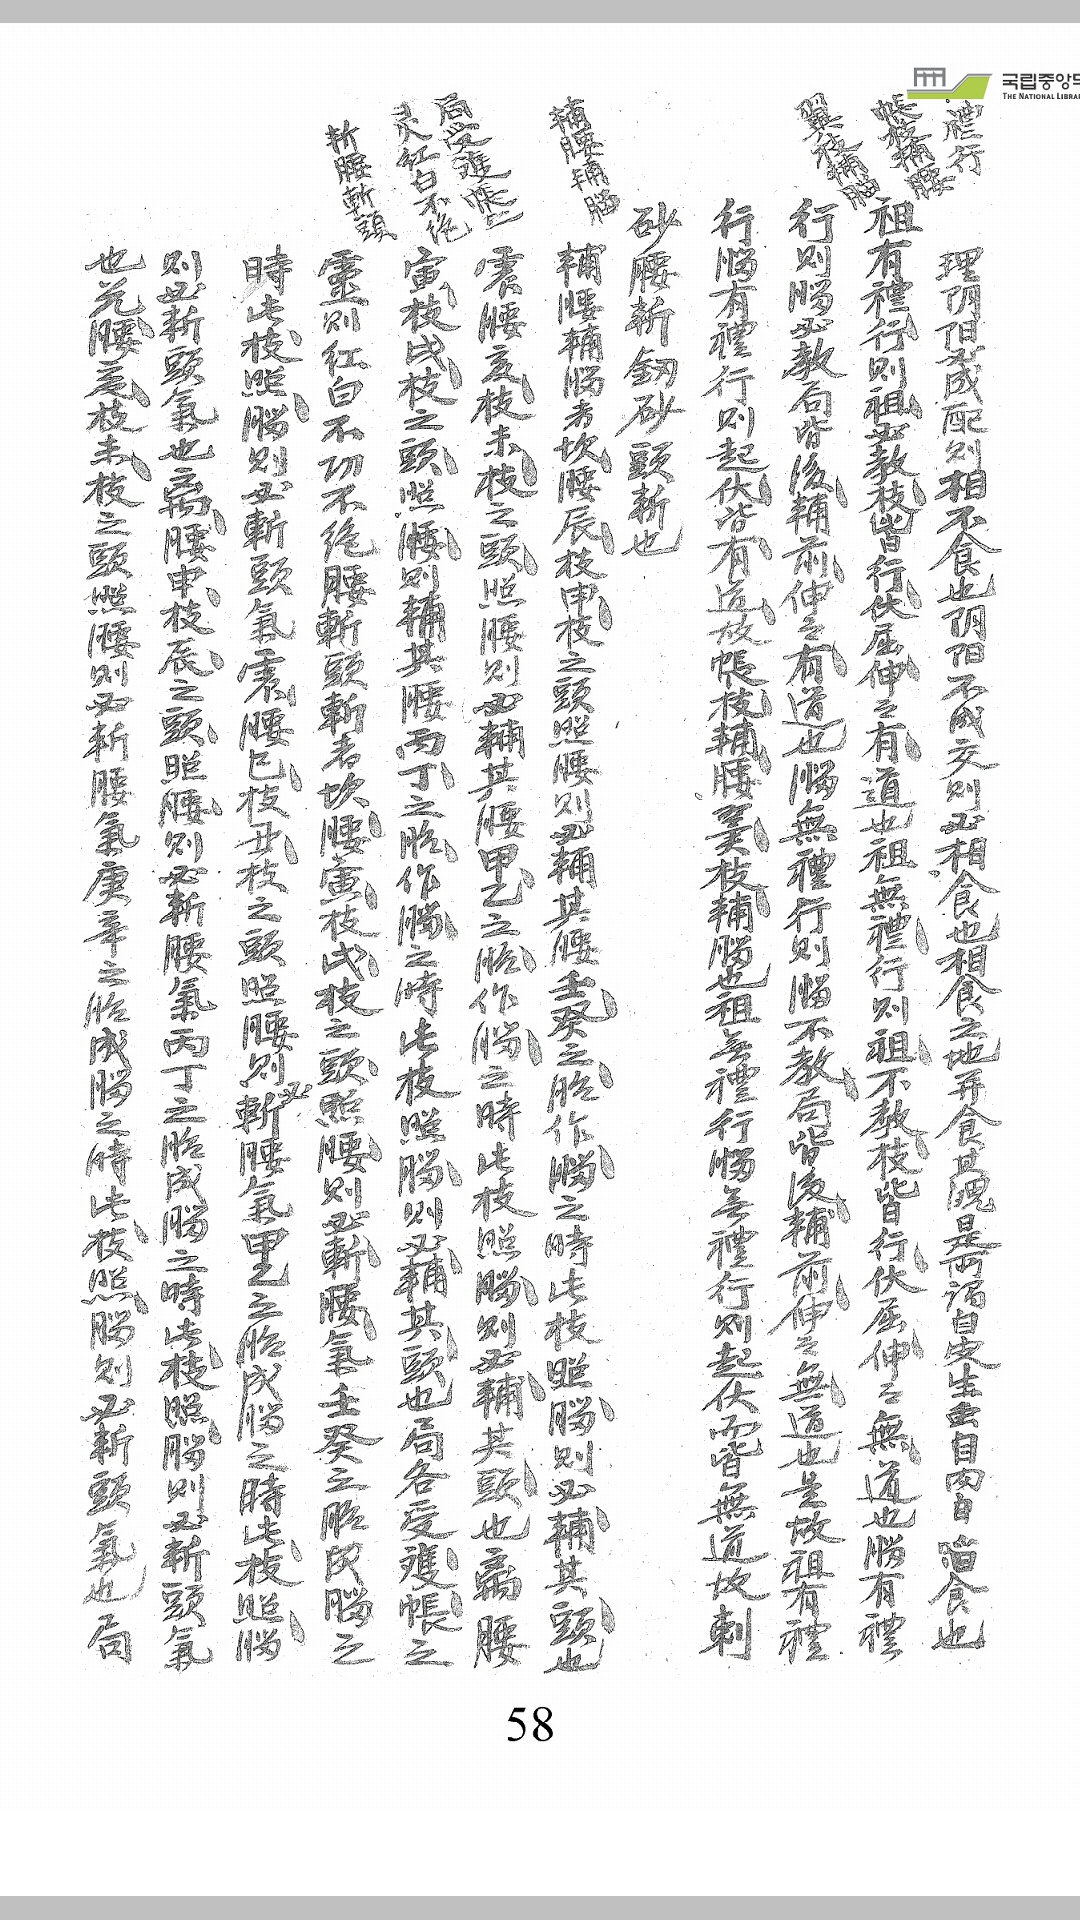 국립중앙도
THE NATIONAL LIBRA
禮行
帳枝輔腰
翼枝輔腦
輔腰輔腦
局受進帳之
灵紅白不絶
斬腰斬頭
理阴阳成配則相不食也阴阳不成交則必相食也相食之地弄食其塊是所謂自出生虫自肉自食也
祖有禮行則祖必敎枝皆行伏屈伸之有道也祖無禮行則祖不敎枝皆行伏屈伸之無道也腦有禮
行則腦必敎局皆後輔前伸之有道也腦無禮行則腦不敎局皆後輔前伸之無道也是故祖有禮
行腦有禮行則起伏皆有道故帳枝輔腰翼枝輔腦也祖無禮行腦無禮行則起伏而皆無道故刺
砂腰斬釼砂頭斬也
輔腰輔腦者坎腰辰枝申枝之頭照腰則必輔其腰壬癸之脫作腦之時此枝照腦則必輔其頭也
震腰亥枝未枝之頭照腰則必輔其腰甲乙之脫作腦之時此枝照腦則必輔其頭也离腰
寅枝戌枝之頭照腰則輔其腰丙丁之脫作腦之時此枝照腦則必輔其頭也局各受進帳之
靈則紅白不切不絶腰斬頭斬者坎腰寅枝戌枝之頭照腰則必斬腰氣壬癸之脫成腦之
時此枝照腦則必斬頭氣震腰巳枝丑枝之頭照腰則必斬腰氣甲乙之脫成腦之時此枝照腦
則必斬頭氣也离腰申枝辰之頭照腰則必斬腰氣丙丁之脫成腦之時此枝照腦則必斬頭氣
也兌腰亥枝未枝之頭照腰則必斬腰氣庚辛之脫成腦之時此枝照腦則必斬頭氣也局
58